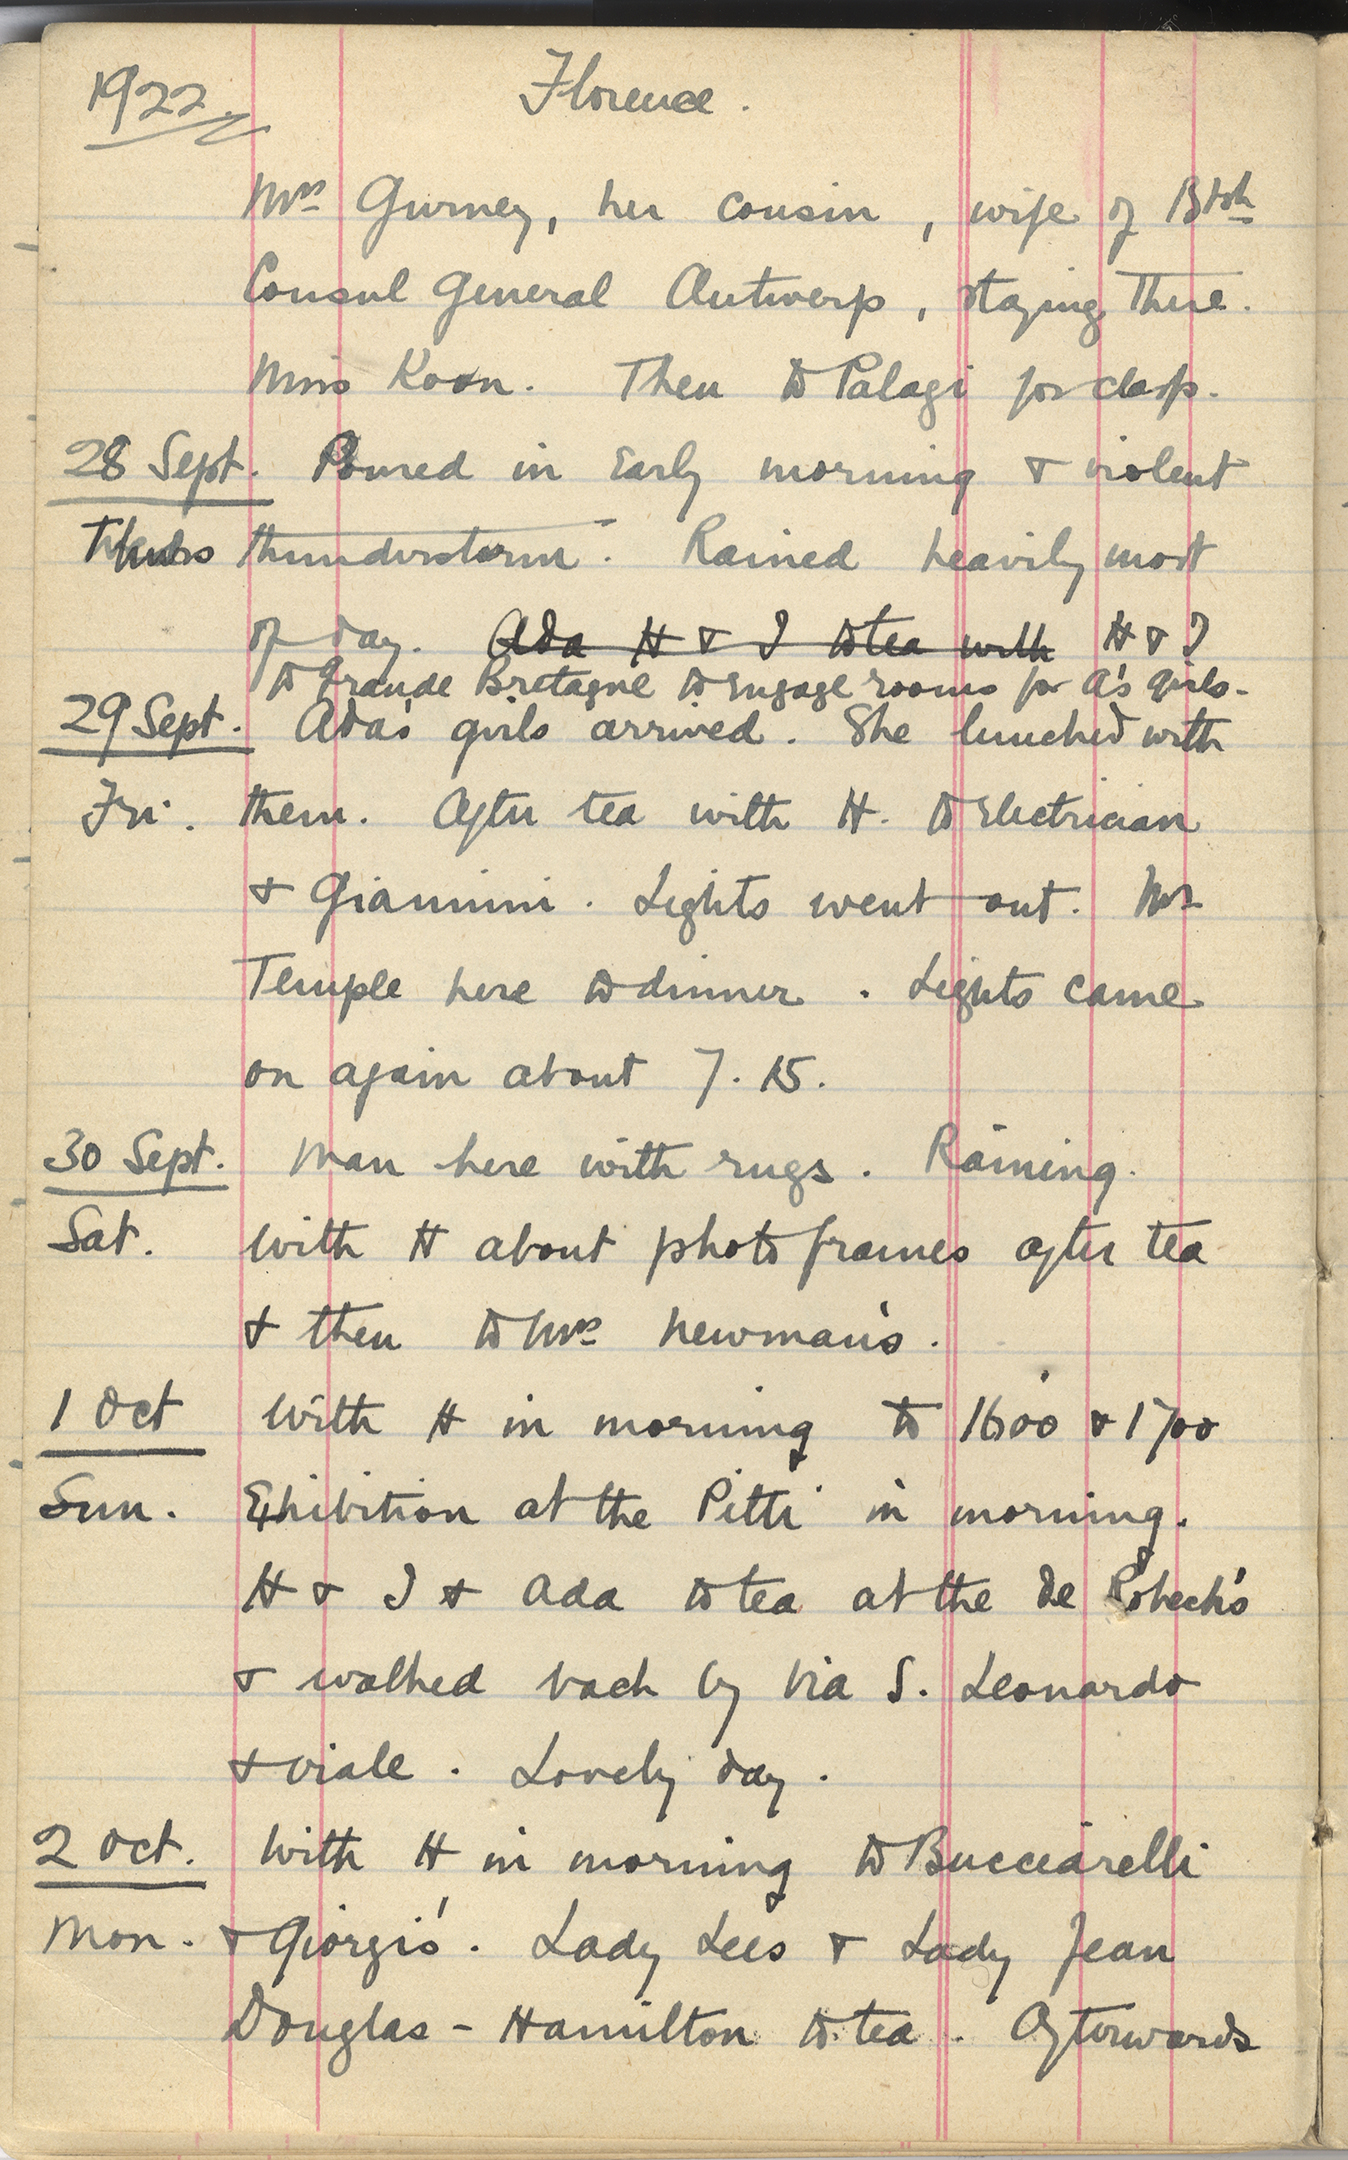 1922. Florence.
Mrs Gurney, her cousin, wife of Btsh
Consul General Antwerp, staying there.
Miss Koon. Then to Palagi for clasp.
28 Sept. Poured in early morning & violent
Thurs thunderstorm. Rained heavily most
of day. Ada H & I to tea with H & I
to Grande Bretagne to engage rooms for A's girls.
29 Sept. Ada's girls arrived. She lunched with
Fri. them. After tea with H. to Electrician
& Giannini. Lights went out. Mr
Temple here to dinner. Lights came
on again about 7.15.
30 Sept. Man here with rugs. Raining.
Sat. With H about photo frames after tea
& then to Mrs Newman's.
1 Oct With H in morning to 1600 & 1700
Sun. Exhibition at the Pitti in morning.
H & I & Ada to tea at the de Robeck's
& walked back by Via S. Leonardo
& viale. Lovely day.
2 Oct. With H in morning to Bucciarelli
Mon. & Giorgi's. Lady Lees & Lady Jean
Douglas-Hamilton to tea. Afterwards